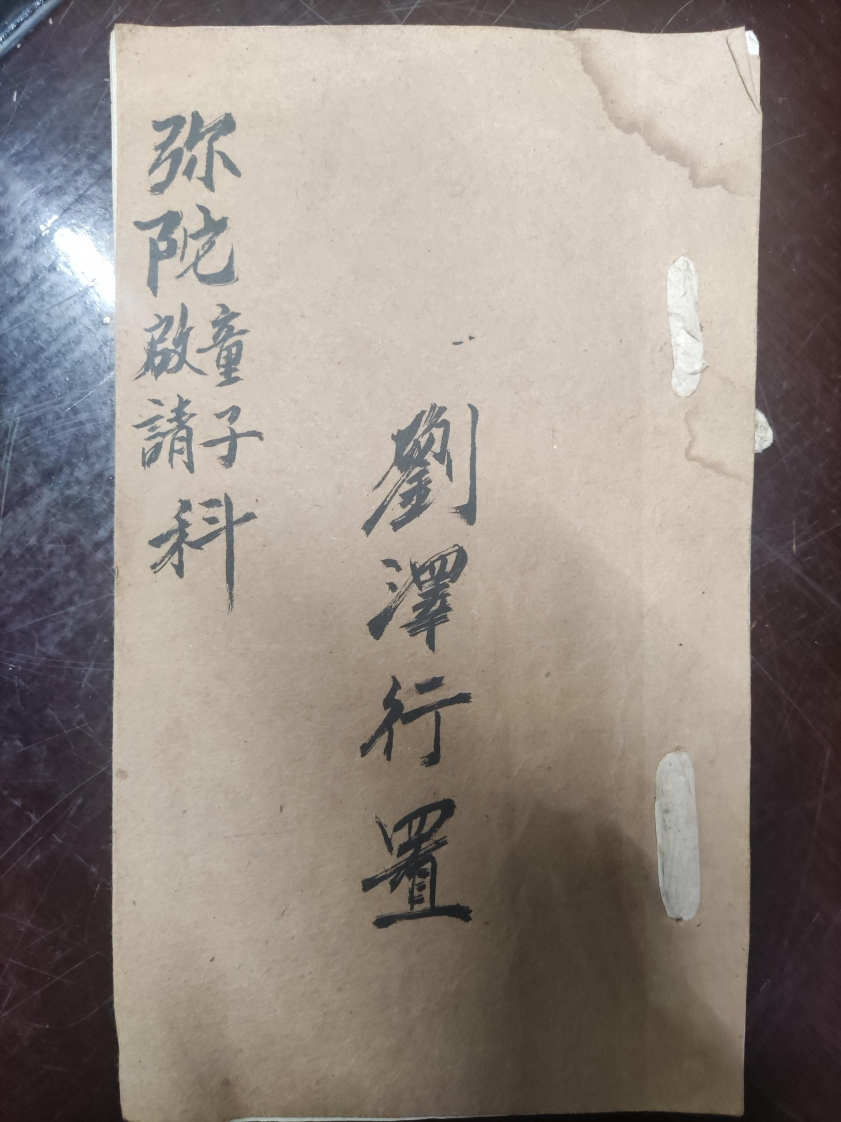 劉澤行置
弥陀
童子
啟請
科